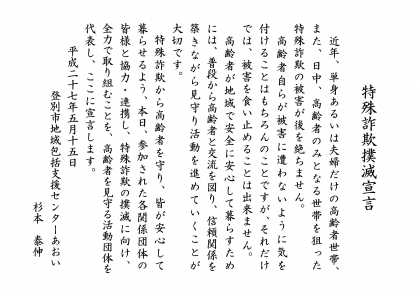 特殊詐欺撲滅宣言
近年、単身あるいは夫婦だけの高齢者世帯、
また、日中、高齢者のみとなる世帯を狙った
特殊詐欺の被害が後を絶ちません。
高齢者自らが被害に遭わないように気を
付けることはもちろんのことですが、それだけ
では、被害を食い止めることは出来ません。
高齢者が地域で安全に安心して暮らすため
には、普段から高齢者と交流を図り、信頼関係を
築きながら見守り活動を進めていくことが
大切です。
特殊詐欺から高齢者を守り、皆が安心して
暮らせるよう、本日、参加された各関係団体の
皆様と協力・連携し、特殊詐欺の撲滅に向け、
全力で取り組むことを、高齢者を見守る活動団体を
代表し、ここに宣言します。
平成二十七年五月十五日
登別市地域包括支援センターあおい
杉本 泰伸